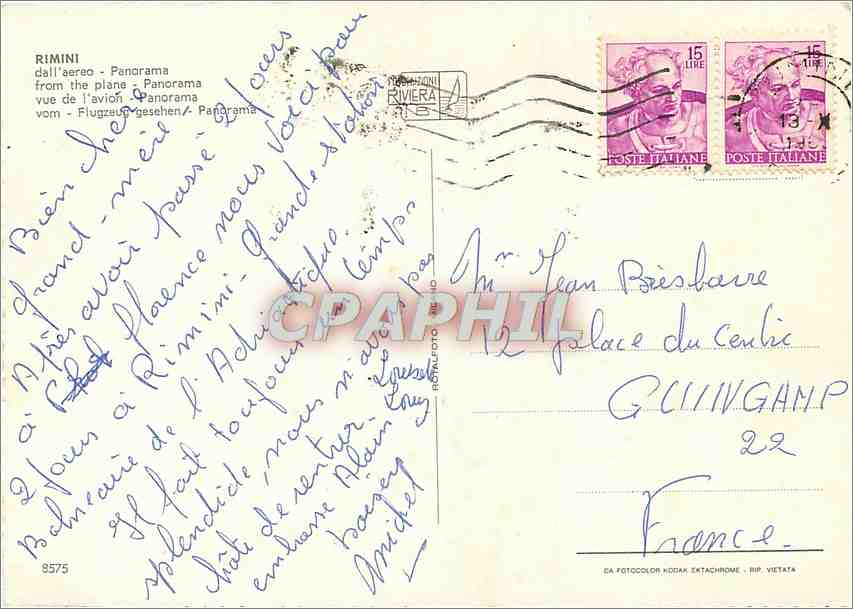 RIMINI
dall'aereo - Panorama
from the plane - Panorama
vue de l'avion - Panorama
vom - Flugzeug gesehen - Panorama
RIVIERA
15
LIRE
POSTE ITALIANE
15
LIRE
POSTE ITALIANE
13 - X
Bien chère
grand-mère
Après avoir passé 2 jours
à Florence nous voici pour
2 jours à Rimini - Grande station
Balnéaire de l'Adriatique.
Il fait toujours un temps
splendide, nous n'avons pas
hâte de rentrer.
embrasse Alain
baisers
Michel
Mme Jean Brisbarre
12 place du Centre
GUINGAMP
22
France.
CPAPHIL
ROTALFOTO - MILANO
8575
DA FOTOCOLOR KODAK EKTACHROME - RIP. VIETATA